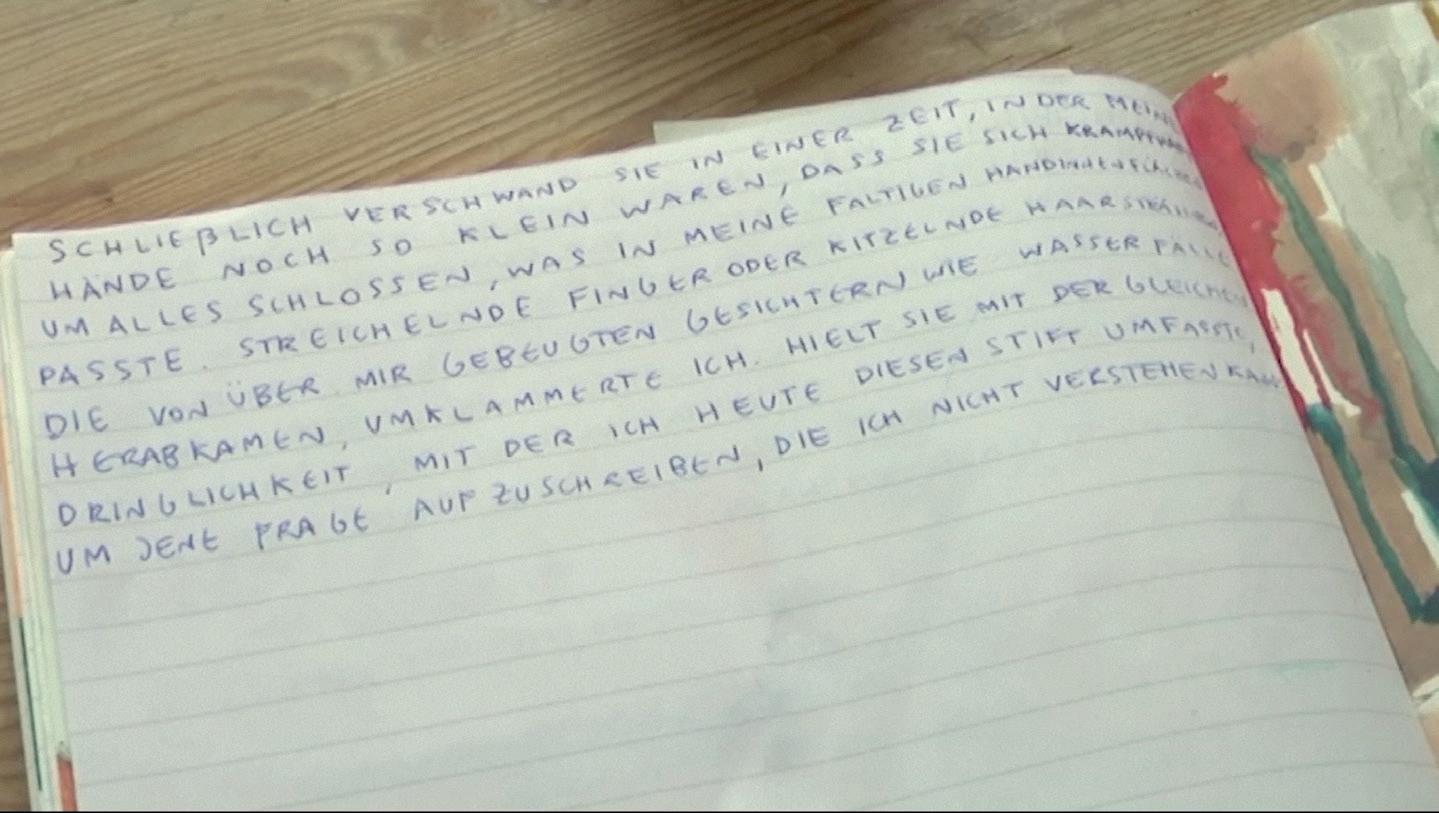 SCHLIEßLICH VERSCHWAND SIE IN EINER ZEIT, IN DER MEINE
HÄNDE NOCH SO KLEIN WAREN, DASS SIE SICH
UM ALLES SCHLOSSEN, WAS IN MEINE FALTIGEN HANDINNENFLÄCHEN
PASSTE. STREICHELNDE FINGER ODER KITZELNDE HAARSTRÄHNEN,
DIE VON ÜBER MIR GEBEUGTEN GESICHTERN WIE WASSERFÄLLE
HERABKAMEN, UMKLAMMERTE ICH. HIELT SIE MIT DER GLEICHEN
DRINGLICHKEIT, MIT DER ICH HEUTE DIESEN STIFT UMFASSTE,
UM JENE FRAGE AUFZUSCHREIBEN, DIE ICH NICHT VERSTEHEN KANN